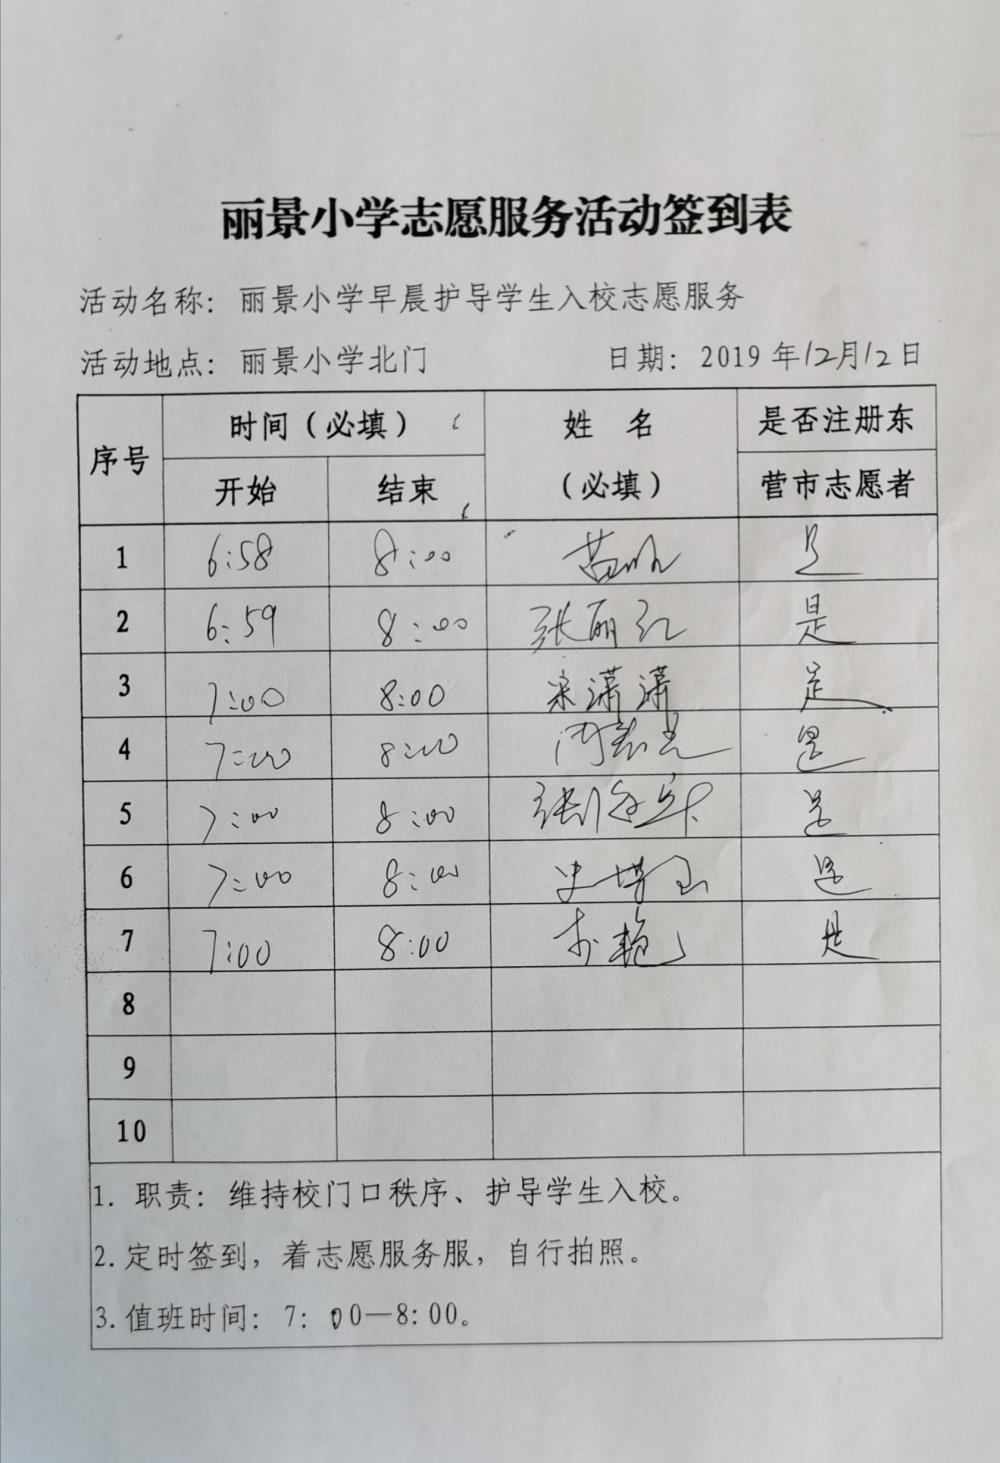 丽景小学志愿服务活动签到表
活动名称：丽景小学早晨护导学生入校志愿服务
活动地点：丽景小学北门 日期：2019年12月12日
序号 时间（必填） 姓 名 是否注册东
开始 结束 （必填） 营市志愿者
1 6:58 8:00 是
2 6:59 8:00 张丽红 是
3 7:00 8:00 宋潇潇 是
4 7:00 8:00 是
5 7:00 8:00 是
6 7:00 8:00 是
7 7:00 8:00 李艳 是
8
9
10
1. 职责：维持校门口秩序、护导学生入校。
2.定时签到，着志愿服务服，自行拍照。
3.值班时间：7：00—8：00。